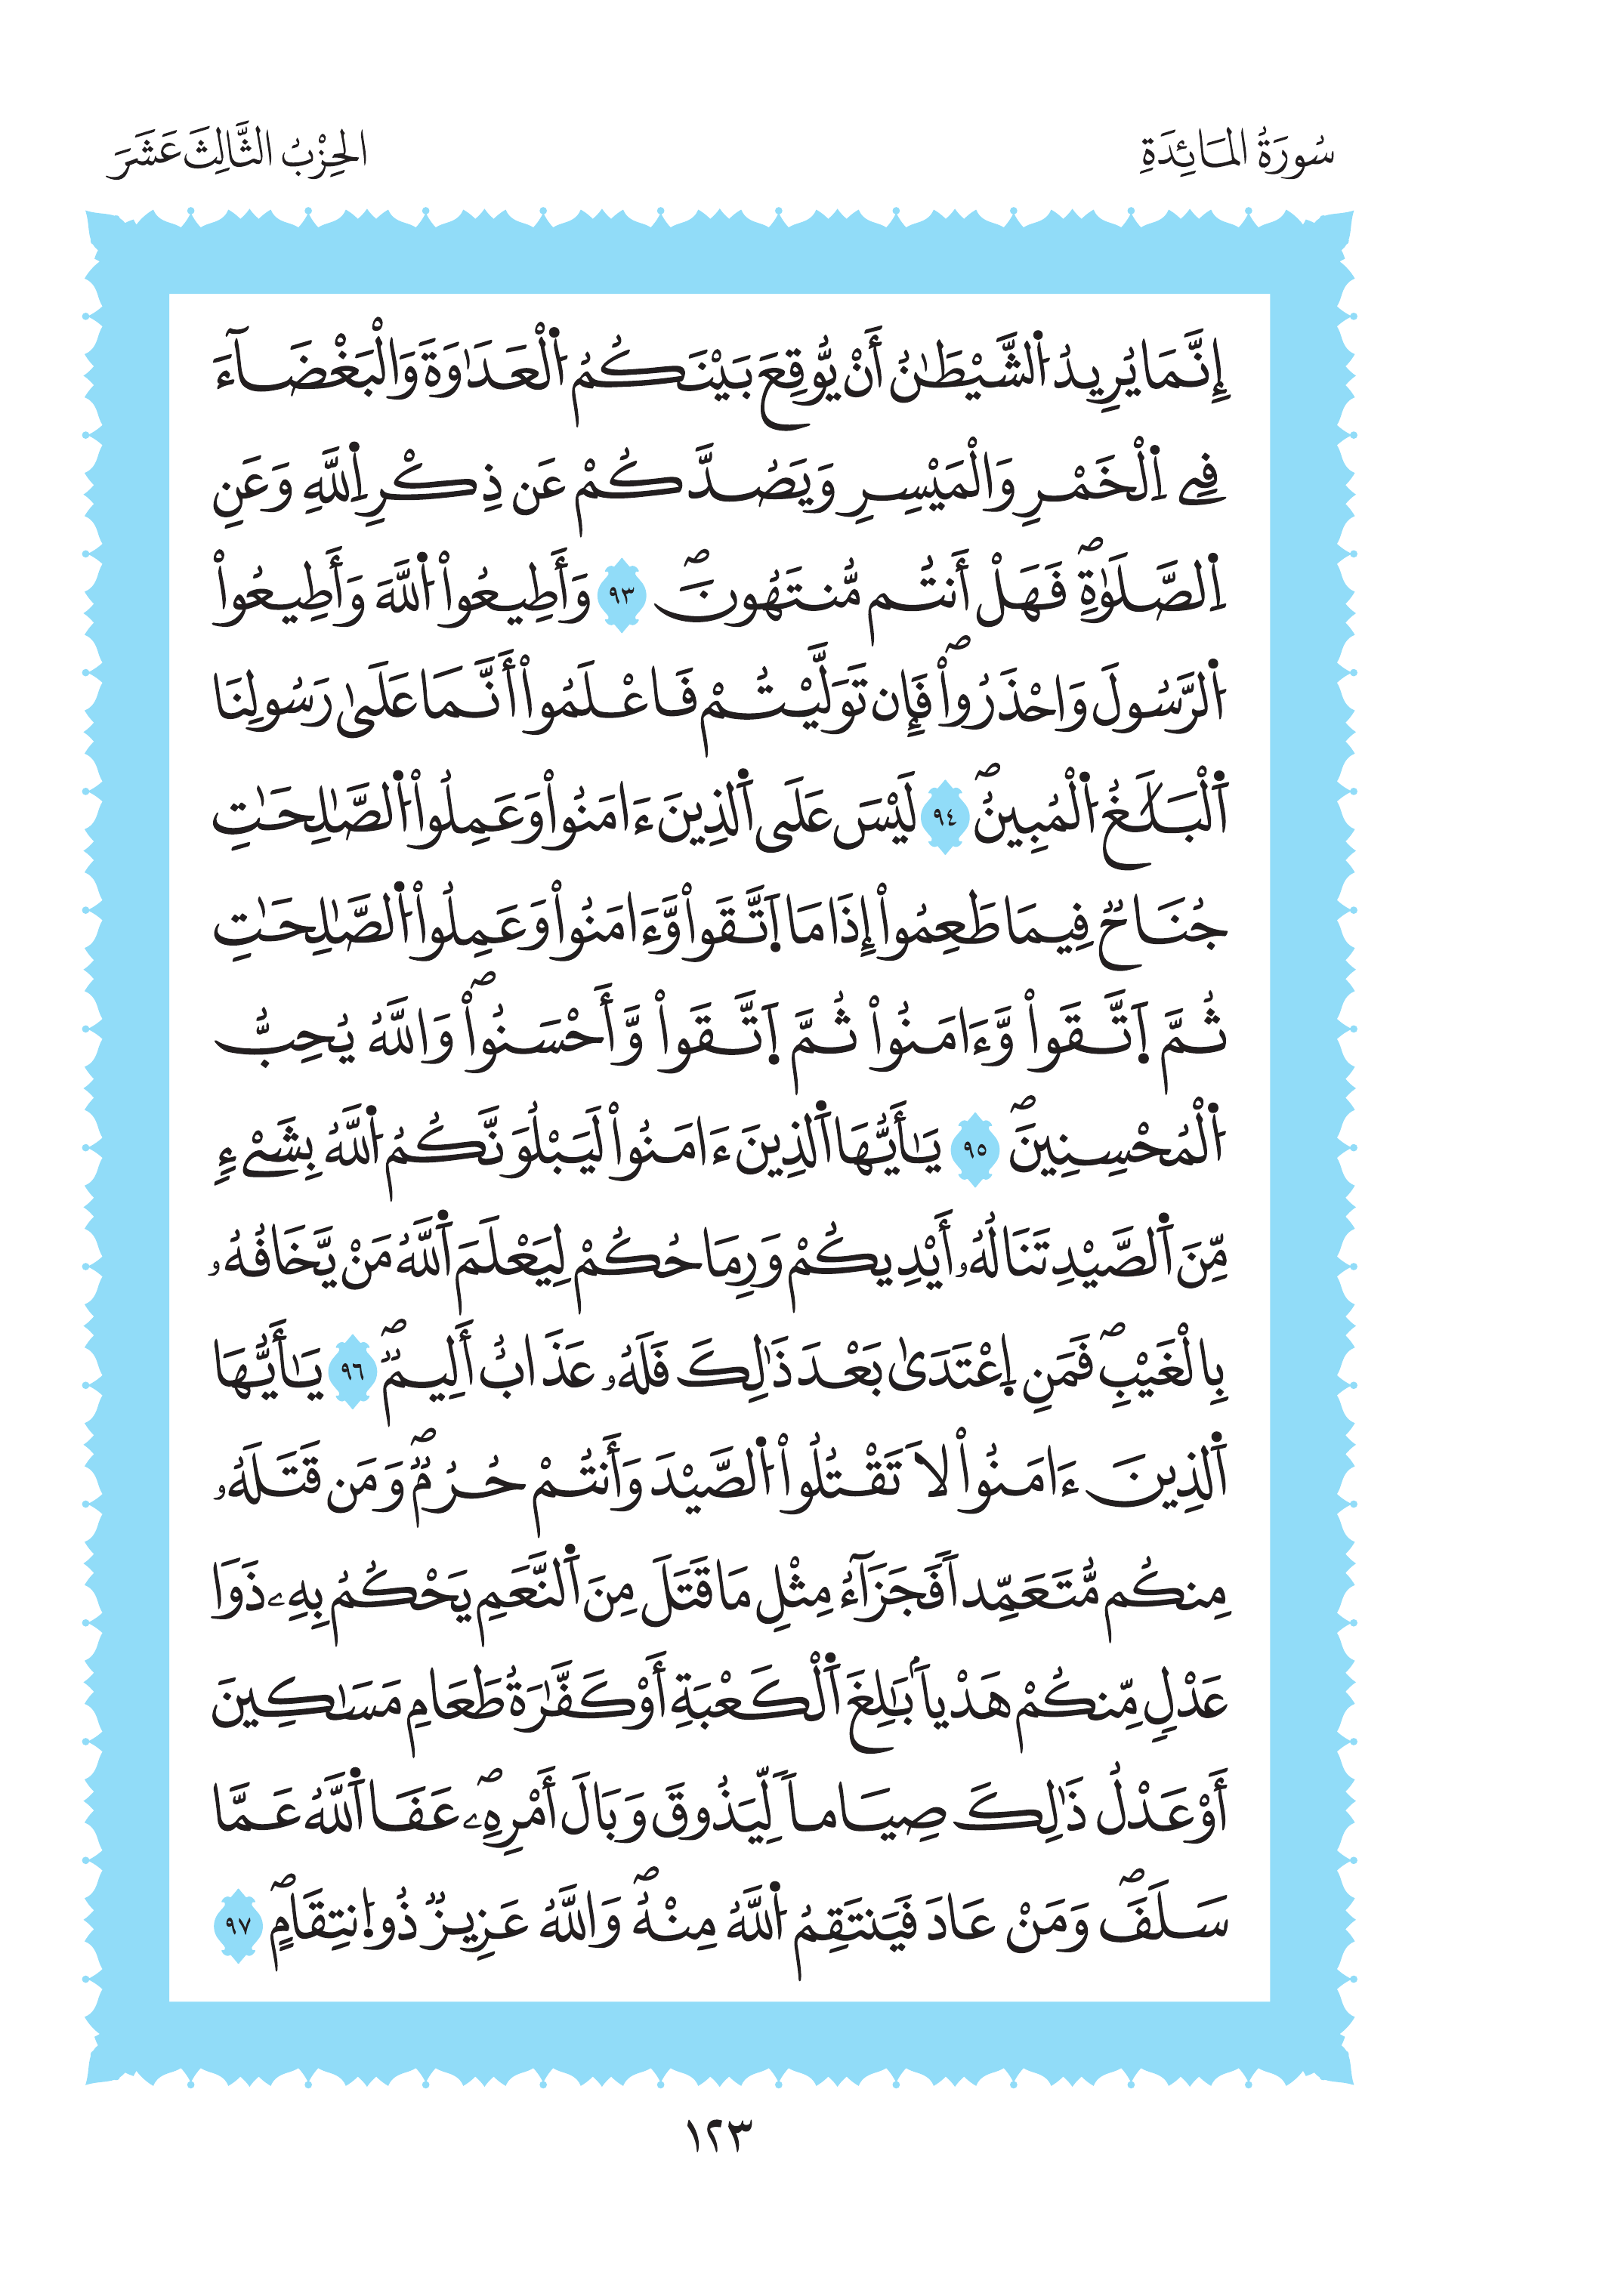 سُورَةُ المَائِدَةِ
الحِزْبُ الثَّالِثَ عَشَرَ
إِنَّمَا يُرِيدُ اُ۬لشَّيْطَٰنُ أَنْ يُّوقِعَ بَيْنَكُمُ اُ۬لْعَدَٰوَةَ وَالْبَغْضَآءَ
فِے اِ۬لْخَمْرِ وَالْمَيْسِرِ وَيَصُدَّكُمْ عَن ذِكْرِ اِ۬للَّهِ وَعَنِ
اِ۬لصَّلَوٰةِۖ فَهَلْ أَنتُم مُّنتَهُونَۖ ٩٣ وَأَطِيعُواْ اُ۬للَّهَ وَأَطِيعُواْ
اُ۬لرَّسُولَ وَاحْذَرُواْۖ فَإِن تَوَلَّيْتُمْ فَاعْلَمُواْ أَنَّمَا عَلَىٰ رَسُولِنَا
اَ۬لْبَلَٰغُ اُ۬لْمُبِينُۖ ٩٤ لَيْسَ عَلَى اَ۬لذِينَ ءَامَنُواْ وَعَمِلُواْ اُ۬لصَّٰلِحَٰتِ
جُنَاحٞ فِيمَا طَعِمُواْ إِذَا مَا اَ۪تَّقَواْ وَّءَامَنُواْ وَعَمِلُواْ اُ۬لصَّٰلِحَٰتِ
ثُمَّ اَ۪تَّقَواْ وَّءَامَنُواْ ثُمَّ اَ۪تَّقَواْ وَّأَحْسَنُواْۖ وَاللَّهُ يُحِبُّ
اُ۬لْمُحْسِنِينَۖ ٩٥ يَٰأَيُّهَا اَ۬لذِينَ ءَامَنُواْ لَيَبْلُوَنَّكُمُ اُ۬للَّهُ بِشَےْءٖ
مِّنَ اَ۬لصَّيْدِ تَنَالُهُۥ أَيْدِيكُمْ وَرِمَاحُكُمْ لِيَعْلَمَ اَ۬للَّهُ مَنْ يَّخَافُهُۥ
بِالْغَيْبِۖ فَمَنِ اِ۪عْتَدَىٰ بَعْدَ ذَٰلِكَ فَلَهُۥ عَذَابٌ أَلِيمٞۖ ٩٦ يَٰأَيُّهَا
اَ۬لذِينَ ءَامَنُواْ لَا تَقْتُلُواْ اُ۬لصَّيْدَ وَأَنتُمْ حُرُمٞۖ وَمَن قَتَلَهُۥ
مِنكُم مُّتَعَمِّداٗ فَجَزَآءُ مِثْلِ مَا قَتَلَ مِنَ اَ۬لنَّعَمِ يَحْكُمُ بِهِۦ ذَوَا
عَدْلٖ مِّنكُمْ هَدْياَۢ بَٰلِغَ اَ۬لْكَعْبَةِ أَوْ كَفَّٰرَةُ طَعَامِ مَسَٰكِينَ
أَوْ عَدْلُ ذَٰلِكَ صِيَاماٗ لِّيَذُوقَ وَبَالَ أَمْرِهِۦۖ عَفَا اَ۬للَّهُ عَمَّا
سَلَفَۖ وَمَنْ عَادَ فَيَنتَقِمُ اُ۬للَّهُ مِنْهُۖ وَاللَّهُ عَزِيزٞ ذُو اُ۪نتِقَامٍۖ ٩٧
١٢٣